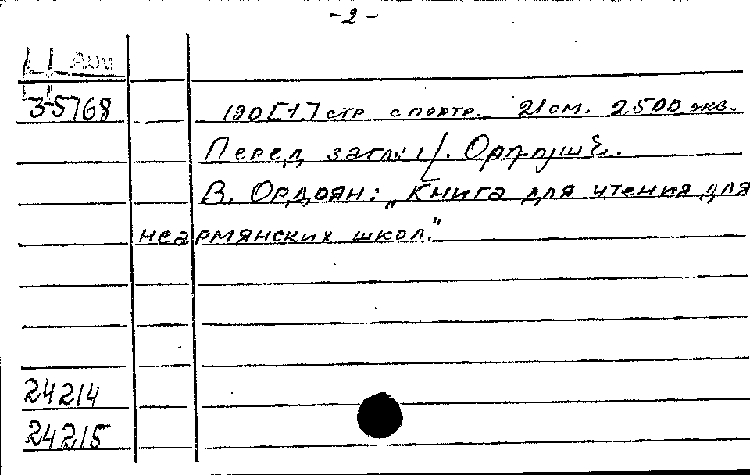 -2-
3-5768
190[1] стр с портр. 21 см. 2500 экз.
Перед загл:
В. Ордоян: „Книга для чтения для
неармянских школ."
24214
24215